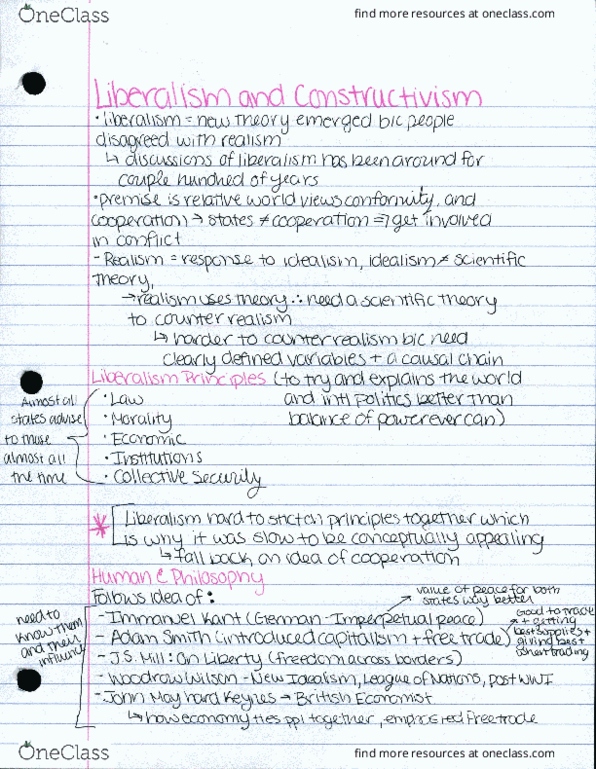 OneClass
find more resources at oneclass.com
Liberalism and Constructivism
• liberalism = new theory emerged b/c people
disagreed with realism
↳ discussions of liberalism has been around for
couple hundred of years
• premise is relative world views conformity, and
cooperation → states ≠ cooperation => get involved
in conflict
- Realism = response to idealism, idealism ≠ scientific
theory,
→ realism uses theory ∴ need a scientific theory
to counter realism
↳ harder to counter realism b/c need
clearly defined variables + a causal chain
Liberalism Principles (to try and explains the world
and intl politics better than
balance of power ever can)
Almost all
states advise
to these
almost all
the time
• Law
• Morality
• Economic
• Institutions
• Collective Security
* Liberalism hard to stich principles together which
is why it was slow to be conceptually appealing
↳ fall back on idea of cooperation
Human & Philosophy
Follows idea of:
value of peace for both
states way better
need to
know them
and their
influence
- Immanuel Kant (German - Imperpetual peace)
- Adam Smith (introduced capitalism + free trade)
Good to trade
+ getting
best supplies +
giving best
when trading
- J.S. Mill: On Liberty (freedom across borders)
- Woodrow Wilson - New Idealism, League of Nations, post WWI
- John Mayhard Keynes → British Economist
↳ how economy ties ppl together, emphasized free trade
OneClass
find more resources at oneclass.com